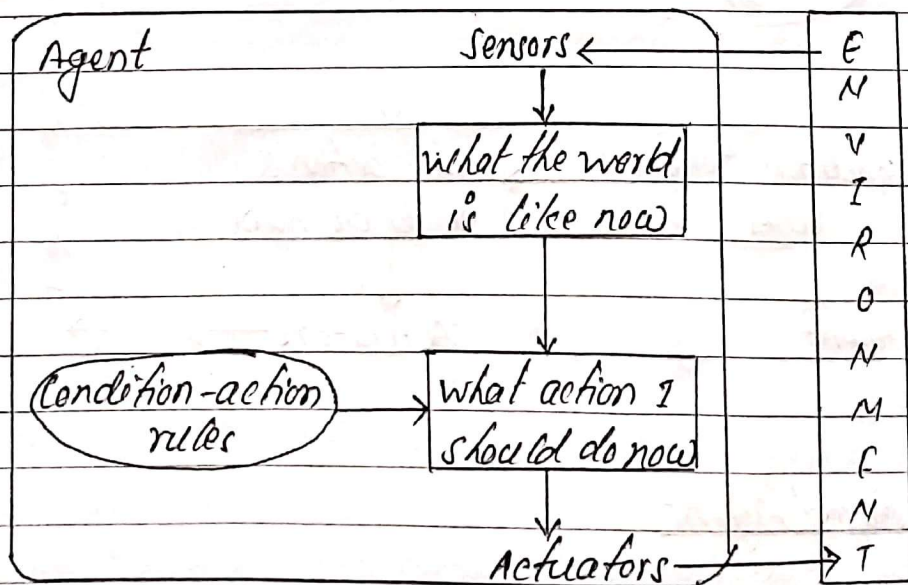 Agent
Sensors
what the world
is like now
Condition-action
rules
what action I
should do now
Actuators
E
N
V
I
R
O
N
M
E
N
T